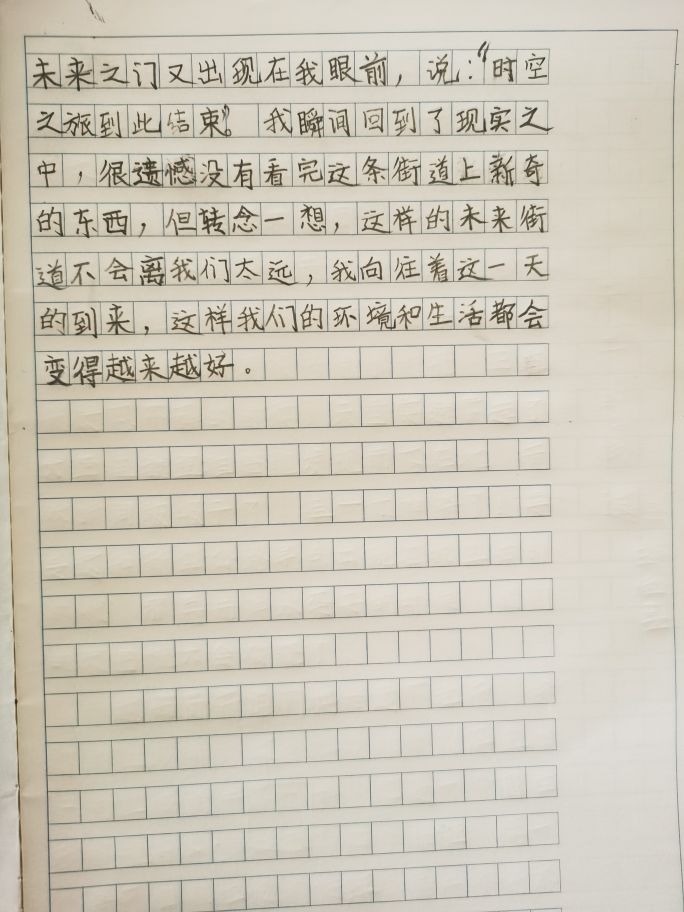 未来之门又出现在我眼前，说：“时空
之旅到此结束。”我瞬间回到了现实之
中，很遗憾没有看完这条街道上新奇
的东西，但转念一想，这样的未来街
道不会离我们太远，我向往着这一天
的到来，这样我们的环境和生活都会
变得越来越好。